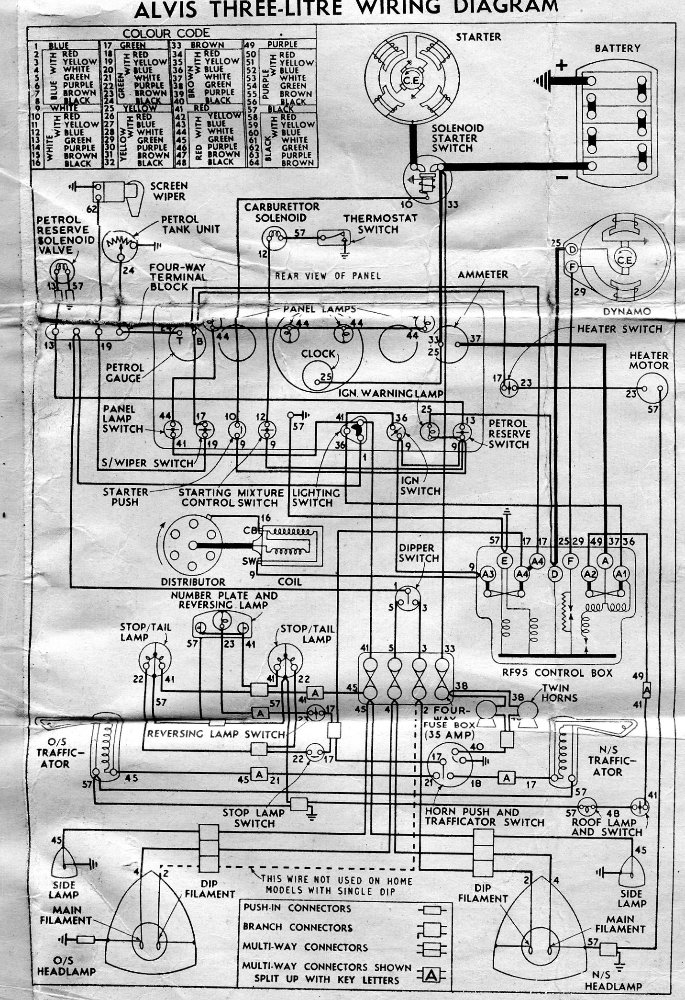 ALVIS THREE-LITRE WIRING DIAGRAM
COLOUR CODE
1 BLUE
2 RED
3 YELLOW
4 WHITE
5 GREEN
6 PURPLE
7 BROWN
8 BLACK
BLUE WITH
9 WHITE
10 RED
11 YELLOW
12 BLUE
13 GREEN
14 PURPLE
15 BROWN
16 BLACK
WHITE WITH
17 GREEN
18 RED
19 YELLOW
20 BLUE
21 WHITE
22 PURPLE
23 BROWN
24 BLACK
GREEN WITH
25 YELLOW
26 RED
27 BLUE
28 WHITE
29 GREEN
30 PURPLE
31 BROWN
32 BLACK
YELLOW WITH
33 BROWN
34 RED
35 YELLOW
36 BLUE
37 WHITE
38 GREEN
39 PURPLE
40 BLACK
BROWN WITH
41 RED
42 YELLOW
43 BLUE
44 WHITE
45 GREEN
46 PURPLE
47 BROWN
48 BLACK
RED WITH
49 PURPLE
50 RED
51 YELLOW
52 BLUE
53 WHITE
54 GREEN
55 BROWN
56 BLACK
PURPLE WITH
57 BLACK
58 RED
59 YELLOW
60 BLUE
61 WHITE
62 GREEN
63 PURPLE
64 BROWN
BLACK WITH
STARTER
C.E.
BATTERY
+
−
SOLENOID
STARTER
SWITCH
10
33
SCREEN
WIPER
62
PETROL
RESERVE
SOLENOID
VALVE
13
57
PETROL
TANK UNIT
24
FOUR-WAY
TERMINAL
BLOCK
CARBURETTOR
SOLENOID
57
12
THERMOSTAT
SWITCH
REAR VIEW OF PANEL
AMMETER
25
D
F
29
C.E.
DYNAMO
PANEL LAMPS
44
44
44
44
13
1
19
T
B
PETROL
GAUGE
CLOCK
25
33
25
37
HEATER SWITCH
17
23
HEATER
MOTOR
23
57
IGN. WARNING LAMP
PANEL
LAMP
SWITCH
44
41
17
19
10
9
12
9
57
41
36
1
36
9
25
13
9
9
PETROL
RESERVE
SWITCH
S/WIPER SWITCH
STARTER
PUSH
STARTING MIXTURE
CONTROL SWITCH
LIGHTING
SWITCH
IGN
SWITCH
16
CB
SW
9
DISTRIBUTOR
COIL
DIPPER
SWITCH
1
5
3
57
17
17
25
29
49
37
36
9
E
A4
A4
F
A
A3
D
A2
A1
RF95 CONTROL BOX
NUMBER PLATE AND
REVERSING LAMP
57
23
41
STOP/TAIL
LAMP
22
41
57
STOP/TAIL
LAMP
41
22
41
22
57
A
A
REVERSING LAMP SWITCH
17
22
17
STOP LAMP
SWITCH
41
5
3
33
45
45
4
2
38
FOUR-WAY
FUSE BOX
(35 AMP)
38
TWIN
HORNS
49
A
41
O/S
TRAFFIC-
ATOR
57
45
45
A
21
17
40
21
18
A
17
N/S
TRAFFIC-
ATOR
57
HORN PUSH AND
TRAFFICATOR SWITCH
57
48
41
ROOF LAMP
AND SWITCH
45
SIDE
LAMP
4
2
DIP
FILAMENT
THIS WIRE NOT USED ON HOME
MODELS WITH SINGLE DIP
MAIN
FILAMENT
O/S
HEADLAMP
DIP
FILAMENT
2
4
45
SIDE
LAMP
MAIN
FILAMENT
57
N/S
HEADLAMP
PUSH-IN CONNECTORS
BRANCH CONNECTORS
MULTI-WAY CONNECTORS
MULTI-WAY CONNECTORS SHOWN
SPLIT UP WITH KEY LETTERS
A